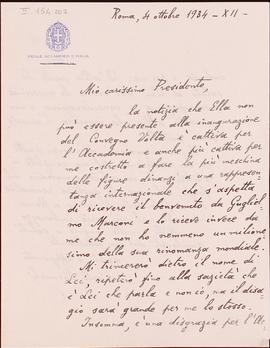 Roma, 4 ottobre 1934 - XII -
REALE ACCADEMIA D'ITALIA
Mio carissimo Presidente,
la notizia che Ella non
può essere presente alla inaugurazione
del Convegno Volta è cattiva per
l'Accademia e anche più cattiva per
me costretto a fare la più meschina
delle figure dinanzi a una rappresen
tanza internazionale che s'aspetta
di ricevere il benvenuto da Gugliel
mo Marconi e lo riceve invece da
me che non ho nemmeno un milione
simo della sua rinomanza mondiale.
Mi trincererò dietro il nome di
Lei, ripeterò fino alla sazietà che
è Lei che parla e non io, ma il disa
gio sarà grande per me lo stesso.
Insomma, è una disgrazia per l'Ac